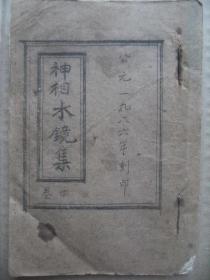 公元一九八六年刻印
神相水鏡集
卷